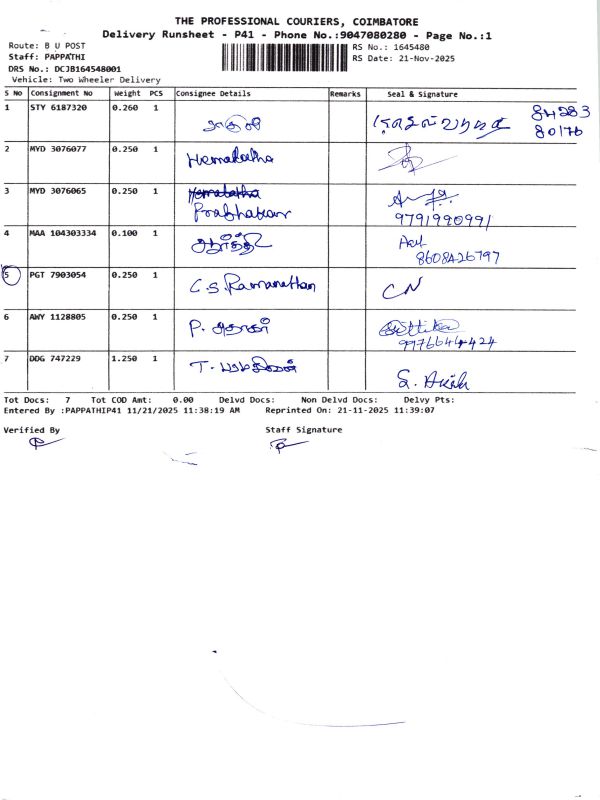 THE PROFESSIONAL COURIERS, COIMBATORE
Delivery Runsheet - P41 - Phone No.:9047080280 - Page No.:1
Route: B U POST
RS No.: 1645480
Staff: PAPPATHI
RS Date: 21-Nov-2025
DRS No.: DCJB164548001
Vehicle: Two Wheeler Delivery
S No Consignment No Weight PCS Consignee Details Remarks Seal & Signature
1 STY 6187320 0.260 1 84283
80176
2 MYD 3076077 0.250 1 Hemalatha
3 MYD 3076065 0.250 1 Hemalatha
Prabhakar 9791990991
4 MAA 104303334 0.100 1
8608426797
5 PGT 7903054 0.250 1 C.S. Ramanathan CN
6 AWY 1128805 0.250 1 P.
9976644424
7 DDG 747229 1.250 1 T.
Tot Docs: 7 Tot COD Amt: 0.00 Delvd Docs: Non Delvd Docs: Delvy Pts:
Entered By :PAPPATHIP41 11/21/2025 11:38:19 AM Reprinted On: 21-11-2025 11:39:07
Verified By Staff Signature